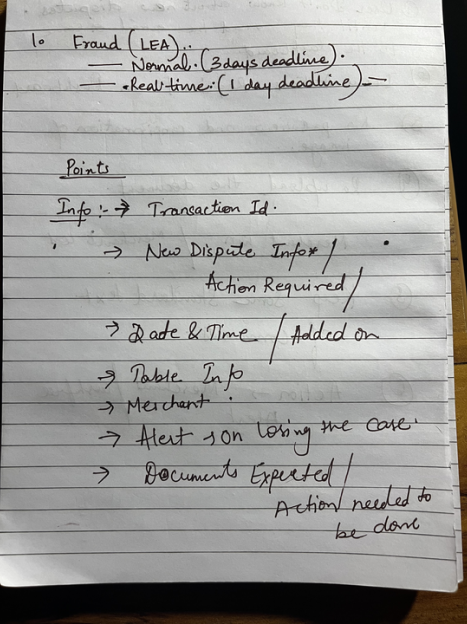 1. Fraud (LEA)..
— Normal. (3 days deadline).
— Real-time: (1 day deadline) —
Points
Info :- → Transaction Id.
→ New Dispute Info* /
Action Required /
→ Date & Time / Added on
→ Table Info
→ Merchant.
→ Alert → on losing the case.
→ Documents Expected /
Action needed to
be done